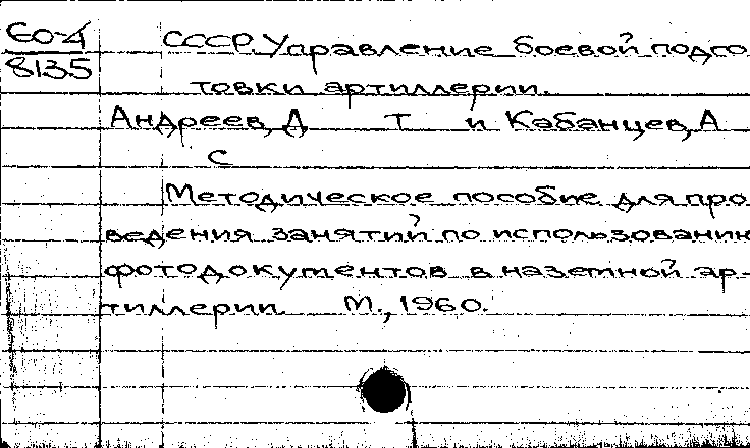 60-4
8135
СССР. Управление боевой подго
товки артиллерии.
Андреев, Д Т и Кабанцев, А
С
Методическое пособие для про
ведения занятий по использовани
фотодокументов в наземной ар-
тиллерии М., 1960.